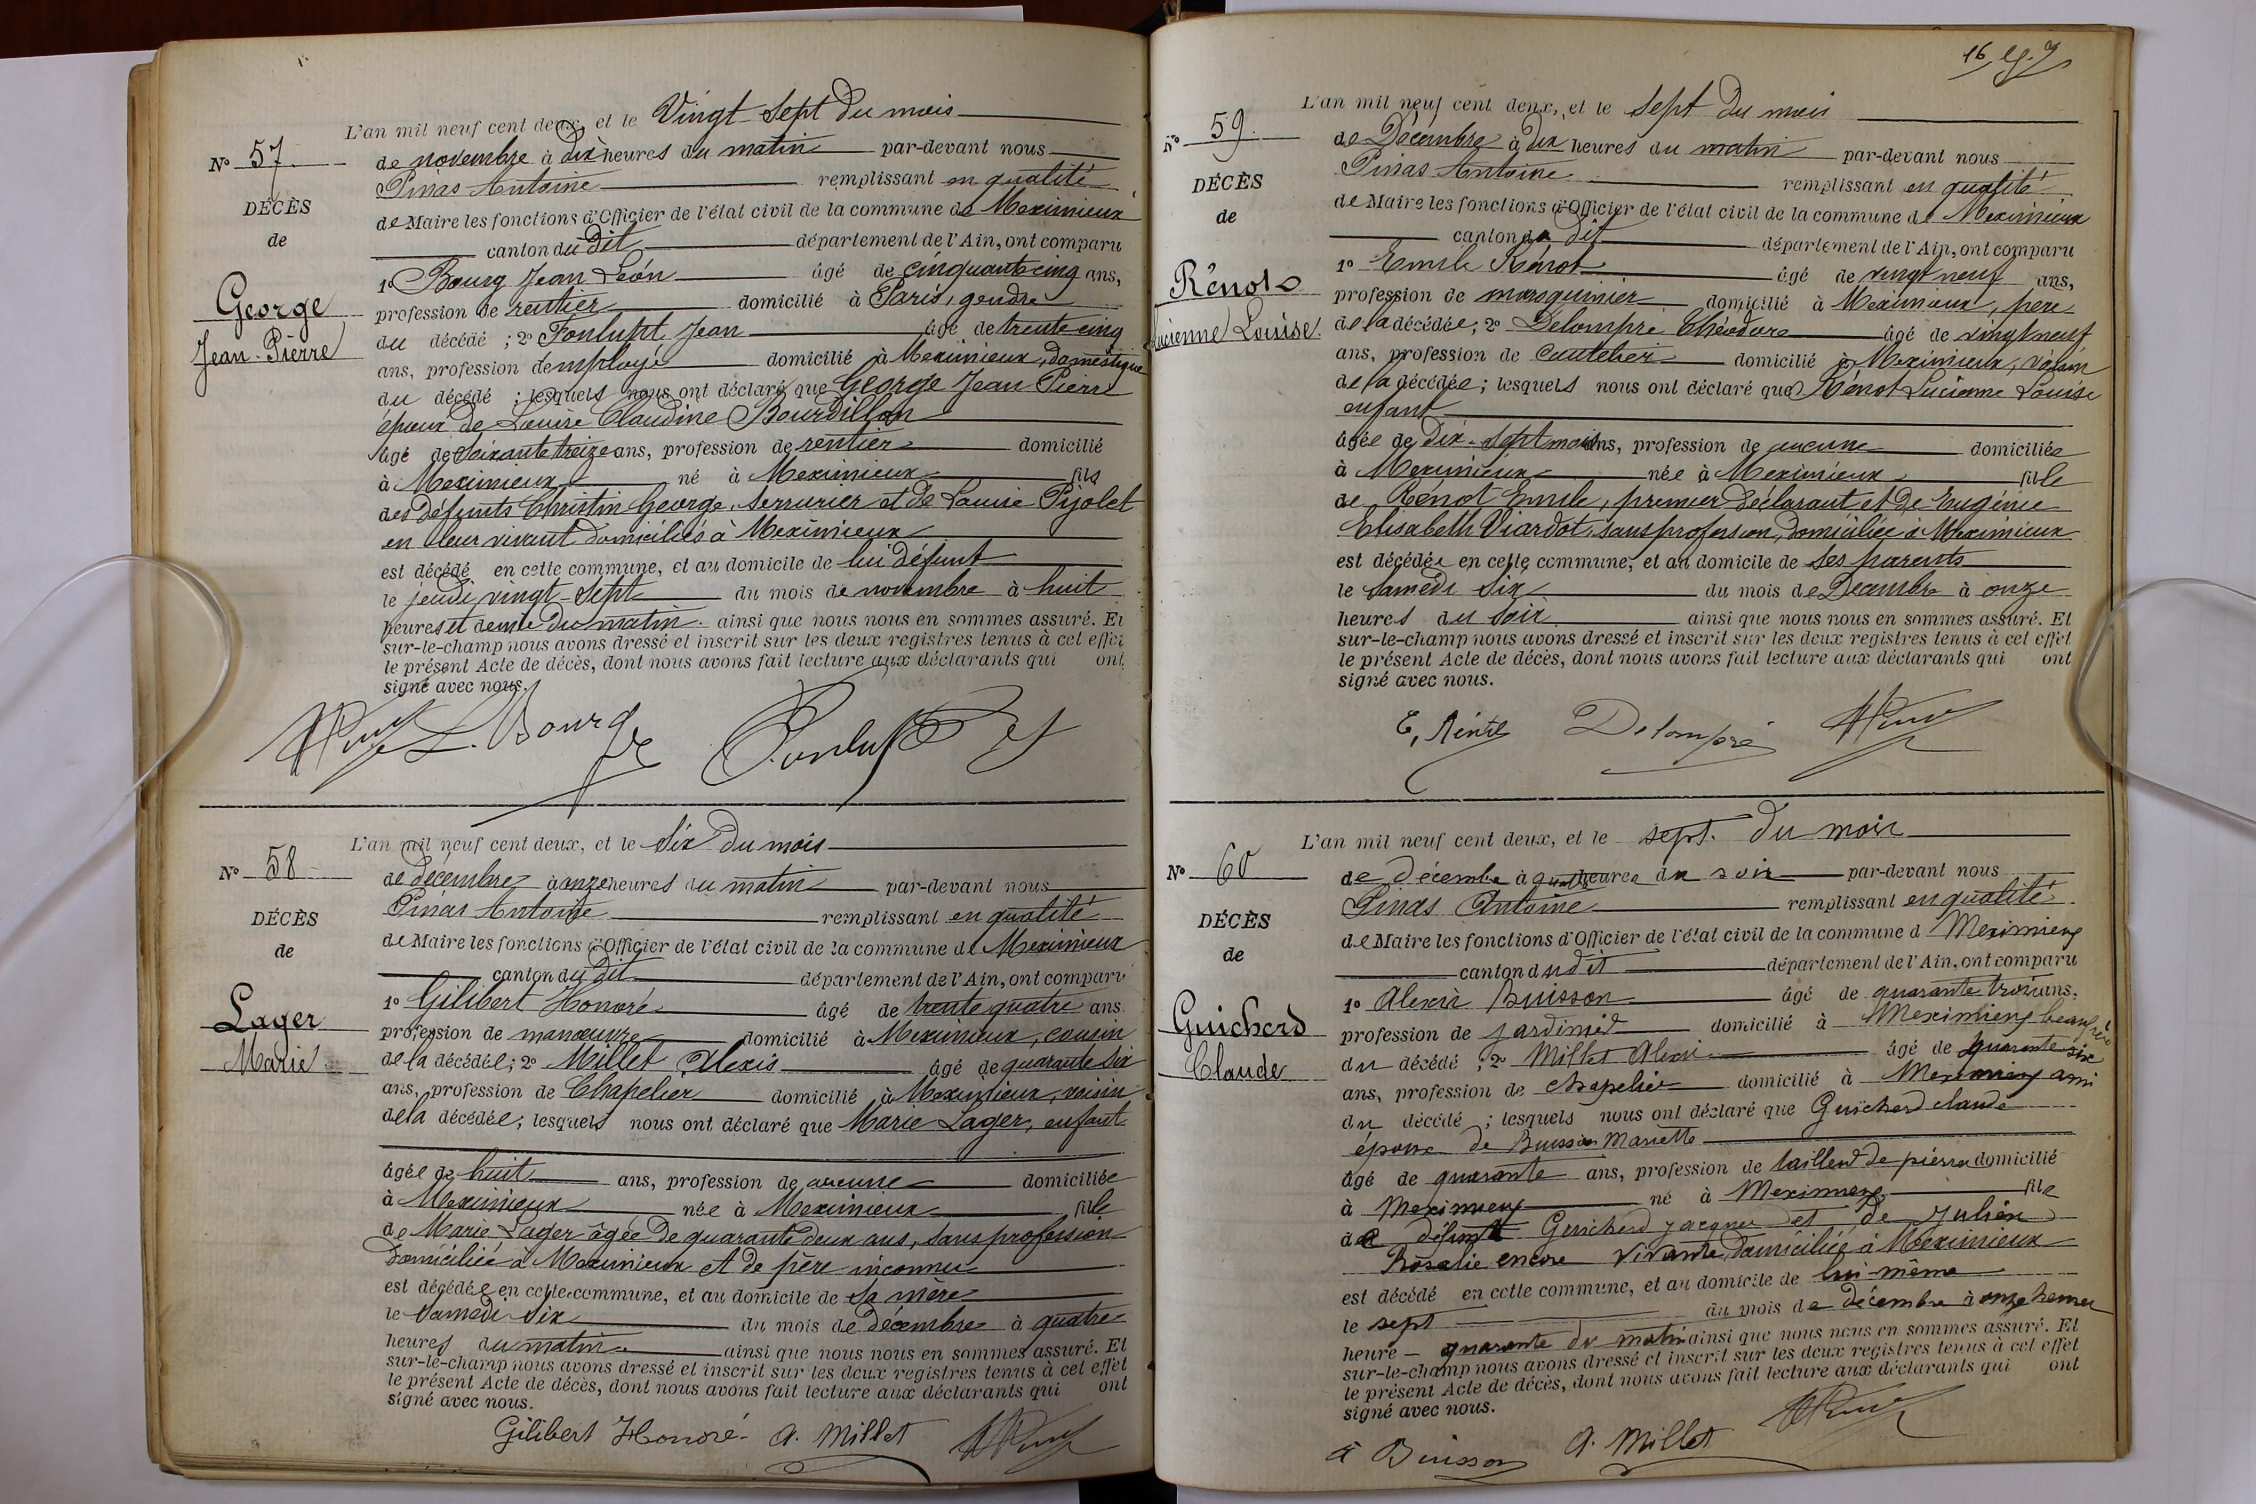 L'an mil neuf cent deux, et le Vingt-Sept du mois
N° 57
de novembre à dix heures du matin par-devant nous
Pinas Antoine remplissant en qualité
DÉCÈS
de Maire les fonctions d'Officier de l'état civil de la commune de Meximieux
de
canton du dit département de l'Ain, ont comparu
1° Bourg Jean Léon âgé de cinquante cinq ans,
George
profession de rentier domicilié à Paris, gendre
Jean-Pierre
du décédé ; 2° Fonlupt Jean âgé de trente cinq
ans, profession d'employé domicilié à Meximieux, domestique
du décédé ; lesquels nous ont déclaré que George Jean-Pierre
époux de Louise Claudine Bourdillon
âgé de soixante treize ans, profession de rentier domicilié
à Meximieux né à Meximieux fils
des défunts Christin George, serrurier et de Louise Pijolet
en leur vivant domiciliés à Meximieux
est décédé en cette commune, et au domicile de lui défunt
le jeudi vingt-sept du mois de novembre à huit
heures et demie du matin ainsi que nous nous en sommes assuré. Et
sur-le-champ nous avons dressé et inscrit sur les deux registres tenus à cet effet
le présent Acte de décès, dont nous avons fait lecture aux déclarants qui ont
signé avec nous.
L. Bourg Fonlupt
L'an mil neuf cent deux, et le Six du mois
N° 58
de décembre à onze heures du matin par-devant nous
Pinas Antoine remplissant en qualité
DÉCÈS
de Maire les fonctions d'Officier de l'état civil de la commune de Meximieux
de
canton du dit département de l'Ain, ont comparu
1° Gilibert Honoré âgé de trente quatre ans
Lager
profession de manœuvre domicilié à Meximieux, cousin
Marie
de la décédée ; 2° Millet Alexis âgé de quarante six
ans, profession de Chapelier domicilié à Meximieux, voisin
de la décédée ; lesquels nous ont déclaré que Marie Lager, enfant
âgée de huit ans, profession de aucune domiciliée
à Meximieux née à Meximieux fille
de Marie Lager âgée de quarante deux ans, sans profession
domiciliée à Meximieux et de père inconnu
est décédée en cette commune, et au domicile de sa mère
le samedi six du mois de décembre à quatre
heures du matin ainsi que nous nous en sommes assuré. Et
sur-le-champ nous avons dressé et inscrit sur les deux registres tenus à cet effet
le présent Acte de décès, dont nous avons fait lecture aux déclarants qui ont
signé avec nous.
Gilibert Honoré A. Millet
16
L'an mil neuf cent deux, et le sept du mois
N° 59
de Décembre à dix heures du matin par-devant nous
Pinas Antoine remplissant en qualité
DÉCÈS
de Maire les fonctions d'Officier de l'état civil de la commune de Meximieux
de
canton du dit département de l'Ain, ont comparu
1° Emile Rénot âgé de vingt neuf ans,
Rénot
profession de maroquinier domicilié à Meximieux, père
Lucienne Louise
de la décédée ; 2° Delompré Théodore âgé de vingt neuf
ans, profession de coutelier domicilié à Meximieux, voisin
de la décédée ; lesquels nous ont déclaré que Rénot Lucienne Louise
enfant
âgée de dix-sept mois ans, profession de aucune domiciliée
à Meximieux née à Meximieux fille
de Rénot Emile, premier déclarant et de Eugénie
Elisabeth Viardot, sans profession, domiciliée à Meximieux
est décédée en cette commune, et au domicile de ses parents
le Samedi six du mois de Décembre à onze
heures du soir ainsi que nous nous en sommes assuré. Et
sur-le-champ nous avons dressé et inscrit sur les deux registres tenus à cet effet
le présent Acte de décès, dont nous avons fait lecture aux déclarants qui ont
signé avec nous.
E, Rénot Delompré
L'an mil neuf cent deux, et le sept. du mois
N° 60
de décembre à quatre heures du soir par-devant nous
Pinas Antoine remplissant en qualité
DÉCÈS
de Maire les fonctions d'Officier de l'état civil de la commune d Meximieux
de
canton du dit département de l'Ain, ont comparu
1° Alexis Buisson âgé de quarante trois ans,
Guichard
profession de jardinier domicilié à Meximieux beau frère
Claude
du décédé ; 2° Millet Alexis âgé de quarante six
ans, profession de chapelier domicilié à Meximieux ami
du décédé ; lesquels nous ont déclaré que Guichard claude
époux de Buisson Mariette
âgé de quarante ans, profession de tailleur de pierre domicilié
à Meximieux né à Meximieux fils
de défunt Guichard Jacques et de Julien
Rosalie encore vivante, domiciliée à Meximieux
est décédé en cette commune, et au domicile de lui-même
le sept du mois de décembre à onze heures
heure quarante du matin ainsi que nous nous en sommes assuré. Et
sur-le-champ nous avons dressé et inscrit sur les deux registres tenus à cet effet
le présent Acte de décès, dont nous avons fait lecture aux déclarants qui ont
signé avec nous.
A Buisson A. Millet